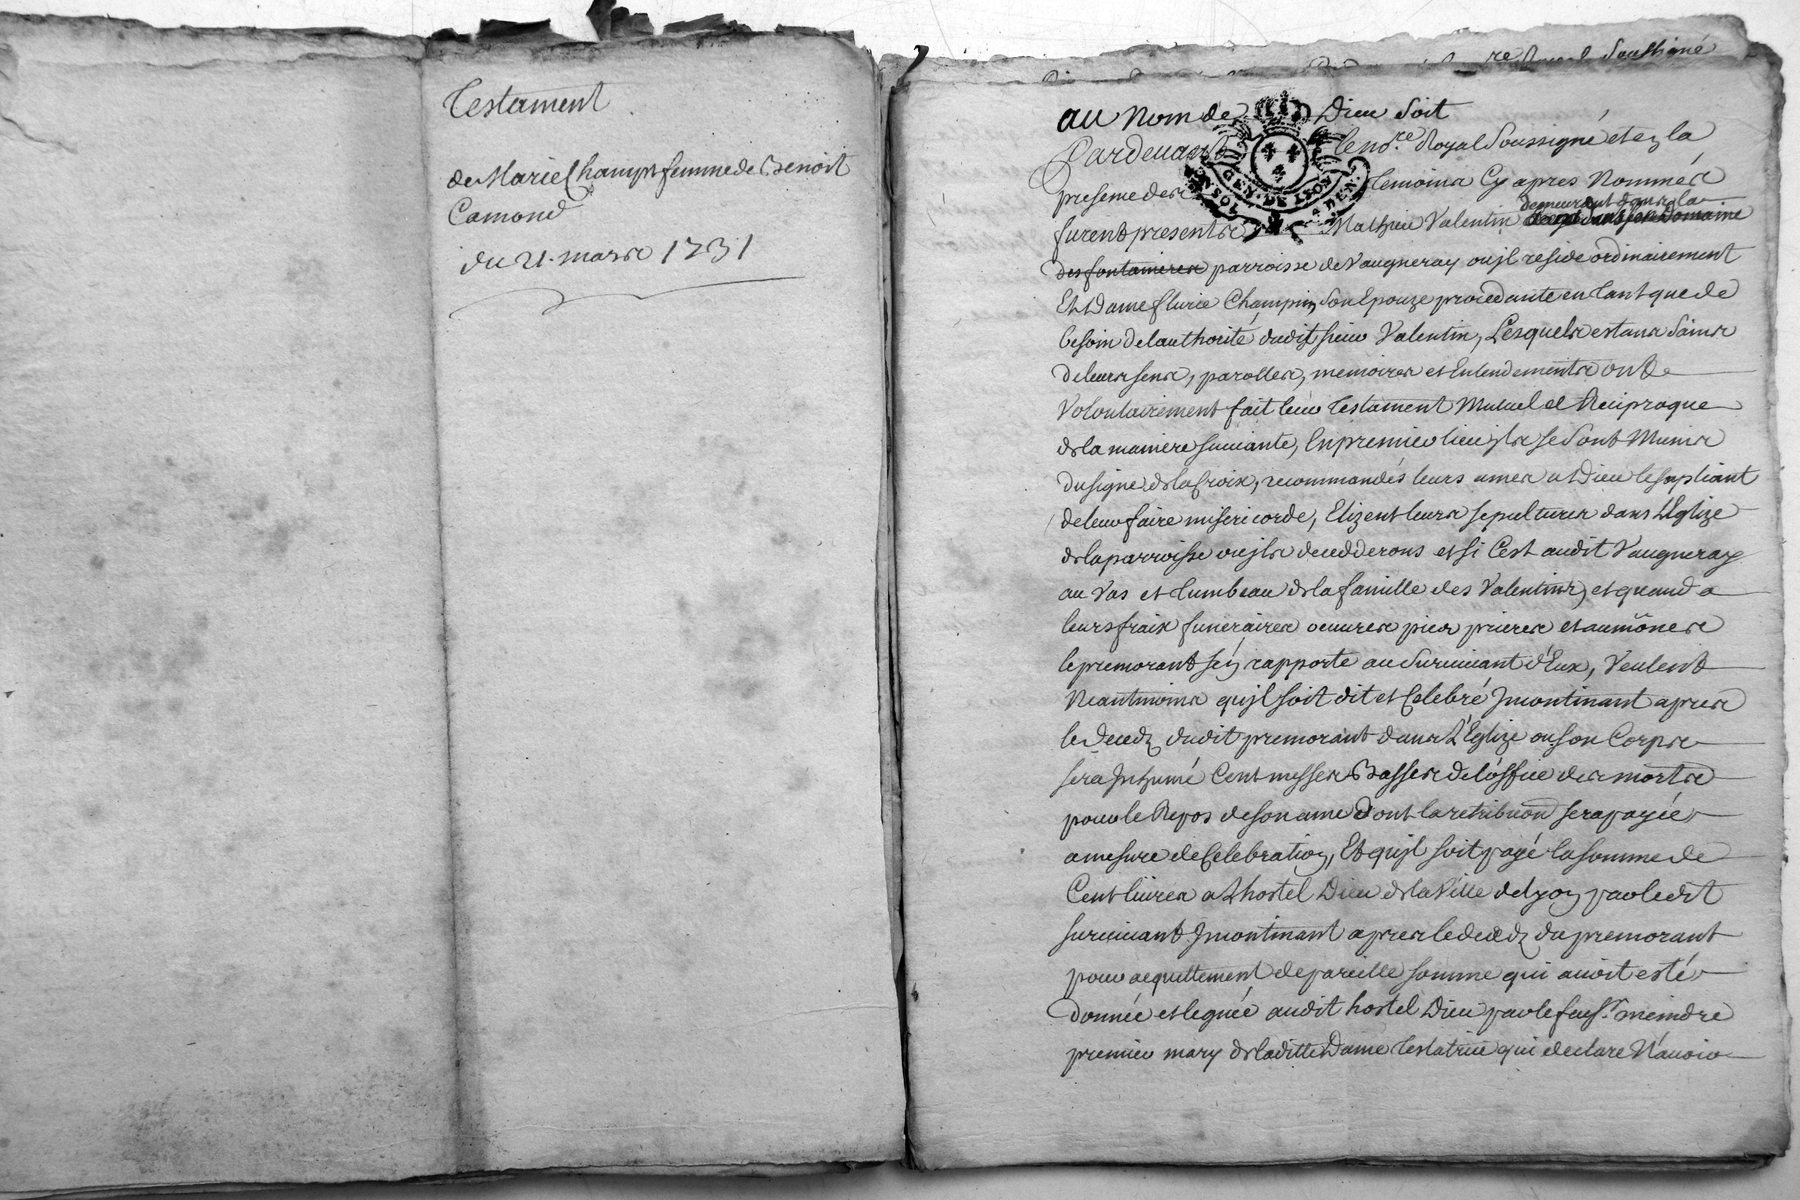 Testament
de Marie Champt femme de Benoit
Camond
du 21. mars 1731
re Royal Soussigné
au nom de Dieu Soit
Pardeuant le no.re Royal Soussigné et en la
GEN. DE LYON
presence des temoins Cy apres Nommés
furent presents Mathieu Valentin demeurant dans la
des fontaineres parroisse de Vaugneray ou jl reside ordinairement
Et Dame flurie Champin son Epouze procedante en tant que de
besoin de lauthorité dudit sieur Valentin, Lesquels estans Sains
de leurs sens, parolles, memoires et Entendements ont
Volontairement fait leur testament Mutuel et Reciproque
de la maniere suiuante, En premier lieu jls se sont Munis
du signe de la Croix, recommandés leurs ames a Dieu le supliant
de leur faire misericorde, Elizent leurs sepultures dans L'Eglize
de la parroisse ou jls decedderons et si C'est audit Vaugneray
au Vas et tumbeau de la famille des Valentins, et quand a
leurs fraix funeraires oeuures pies prieres et aumônes
le premorant s'en rapporte au Suruiuant d'Eux, Veulent
Neantmoins qu'jl soit dit et Celebré Jncontinant apres
le Decedz dudit premorant dans L'Eglize ou son Corps
sera Jnhumé Cent messes Basses de l'office des morts
pour le Repos de son ame Dont la retribuon sera payée
a mesure de Celebration, Et qu'jl soit payé la somme de
Cent liures a Lhostel Dieu de la Ville de Lyon par ledit
suruiuant Jncontinant apres le decedz du premorant
pour acquittement de pareille somme qui auoit esté
donnée et leguée audit hostel Dieu par le feu S.r meindre
premier mary de laditte Dame testatrice qui declare N'auoir